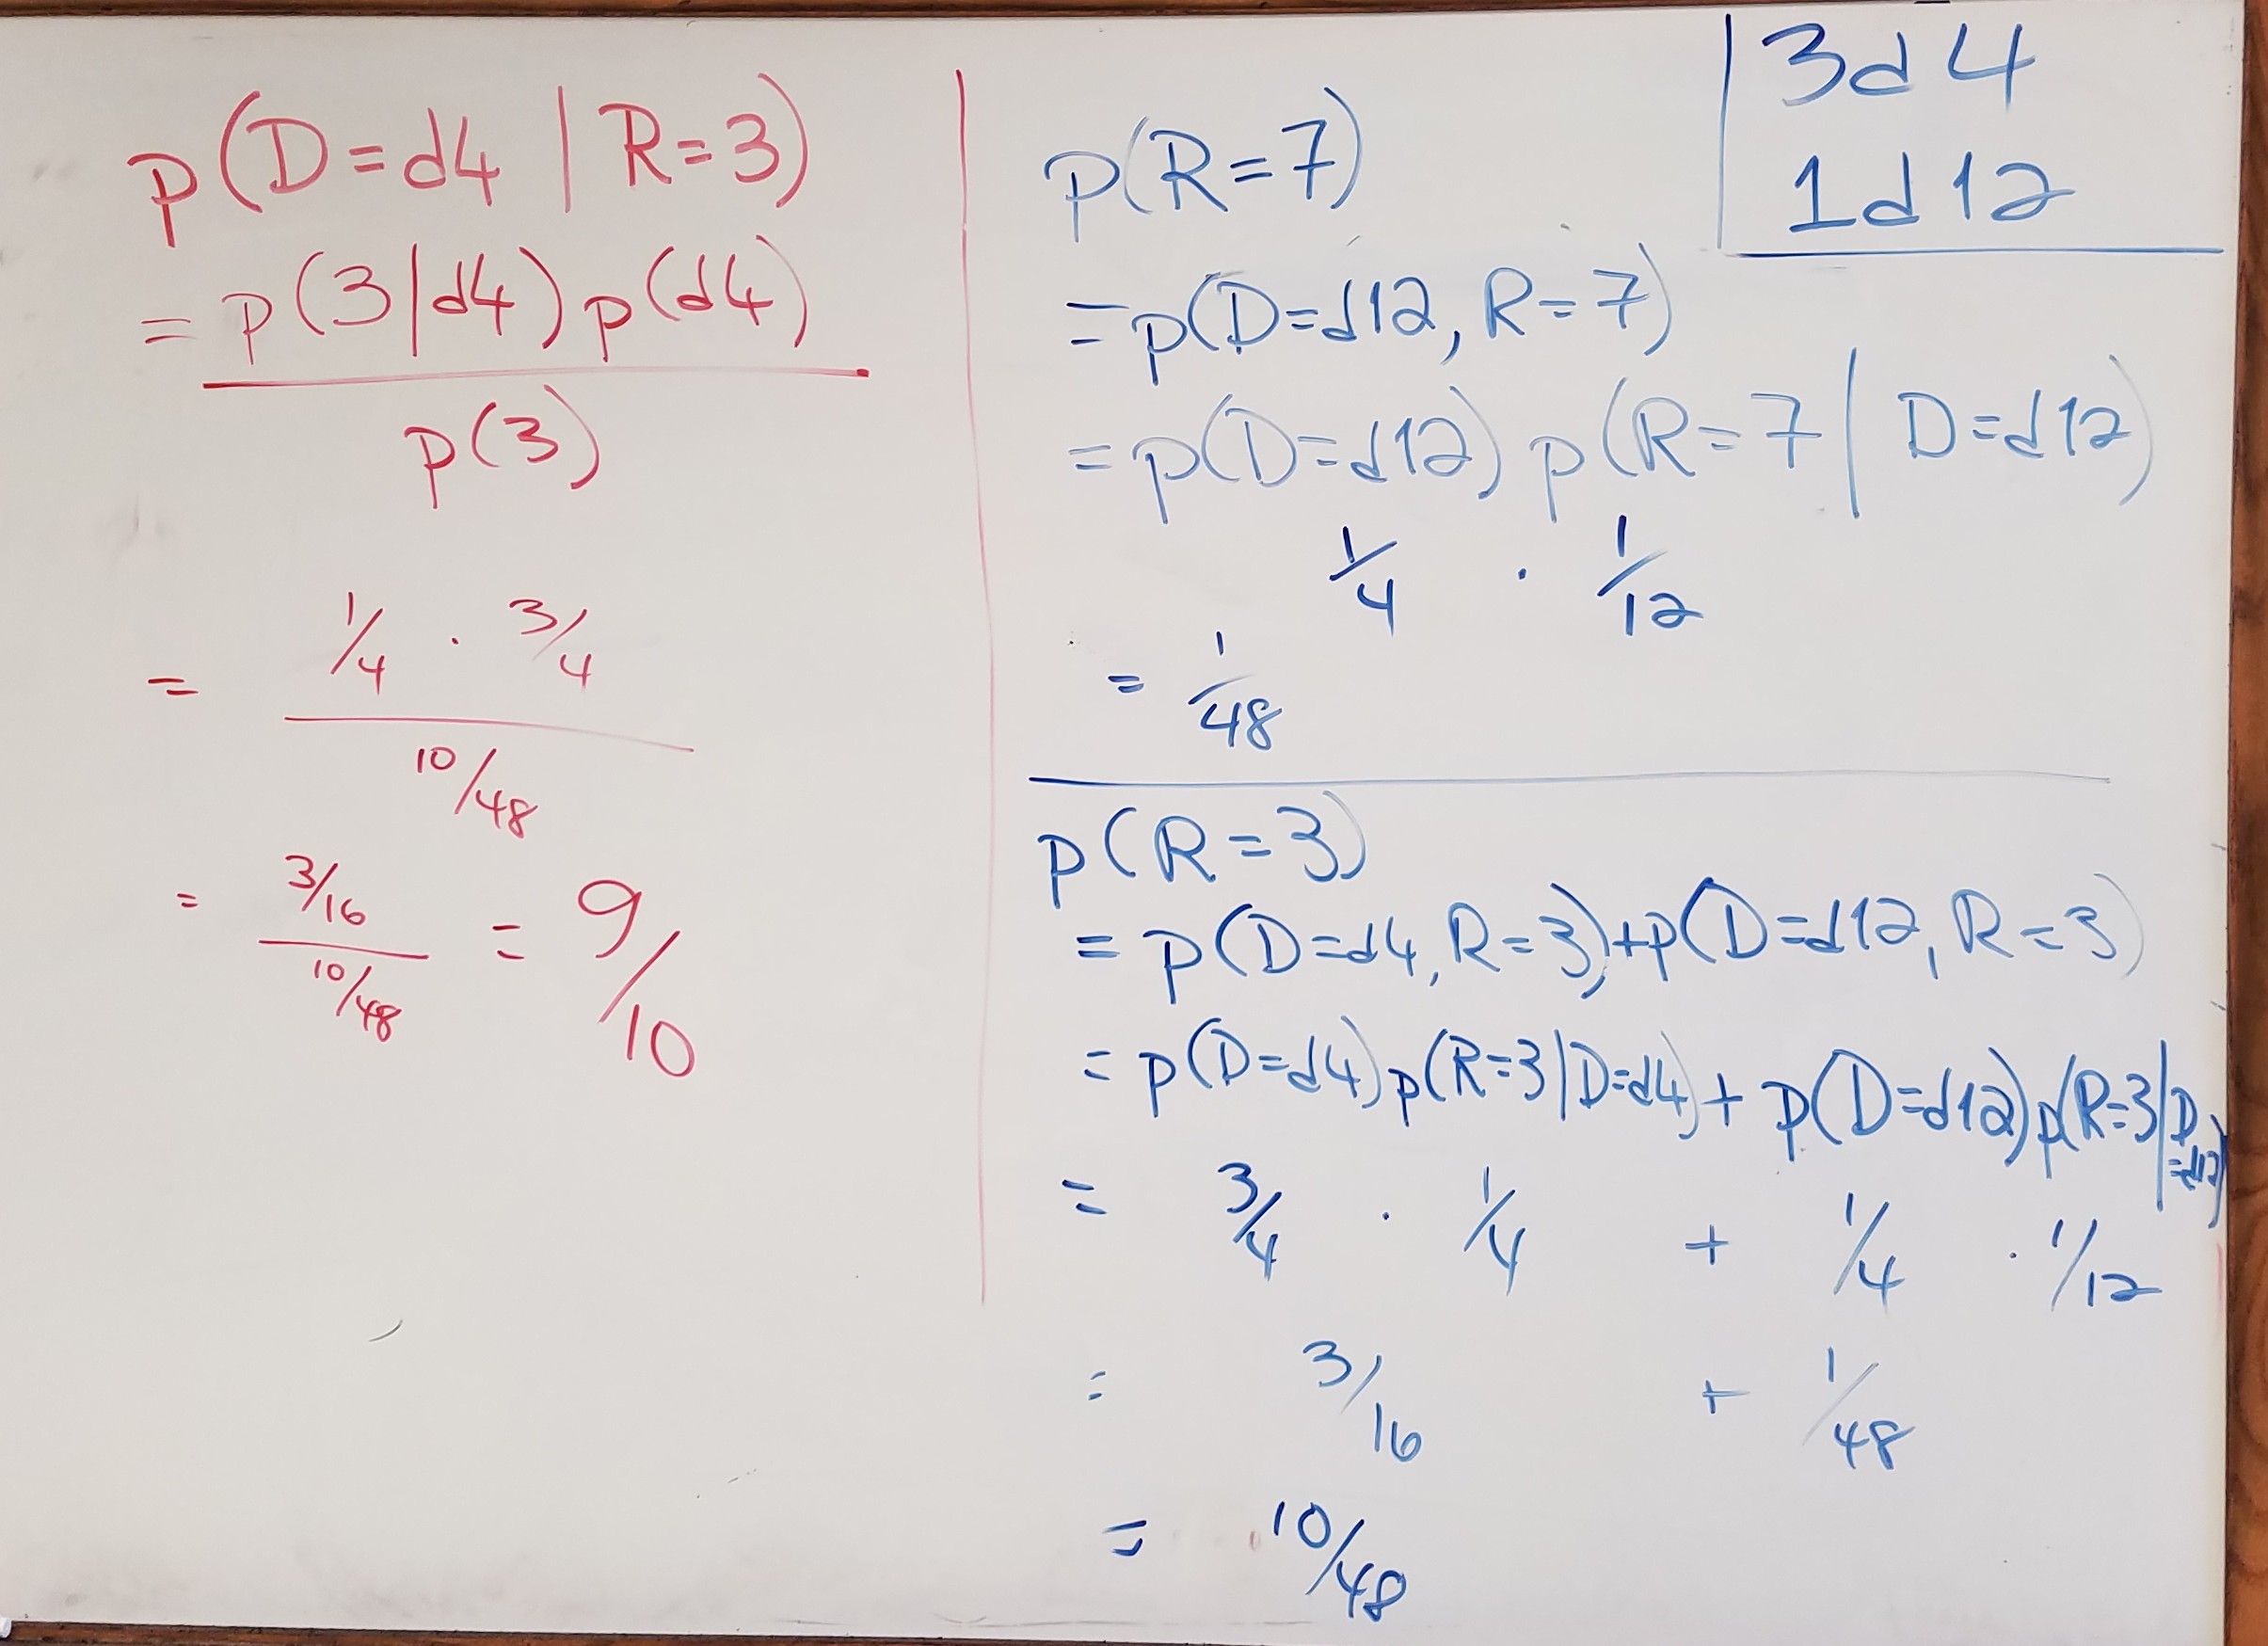 p(D=d4 | R=3)
= p(3|d4) p(d4)
p(3)
= 1/4 · 3/4
10/48
= 3/16 = 9/10
10/48
3d4
1d12
p(R=7)
=p(D=d12, R=7)
=p(D=d12) p(R=7 | D=d12)
1/4 · 1/12
= 1/48
p(R=3)
= p(D=d4, R=3)+p(D=d12, R=3)
= p(D=d4)p(R=3|D=d4) + p(D=d12)p(R=3|D
=d12)
= 3/4 · 1/4 + 1/4 · 1/12
= 3/16 + 1/48
= 10/48